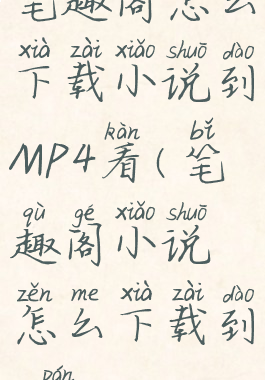 笔趣阁怎么
xià zài xiǎo shuō dào
下载小说到
kàn bǐ
MP4看(笔
qù gé xiǎo shuō
趣阁小说
zěn me xià zài dào
怎么下载到